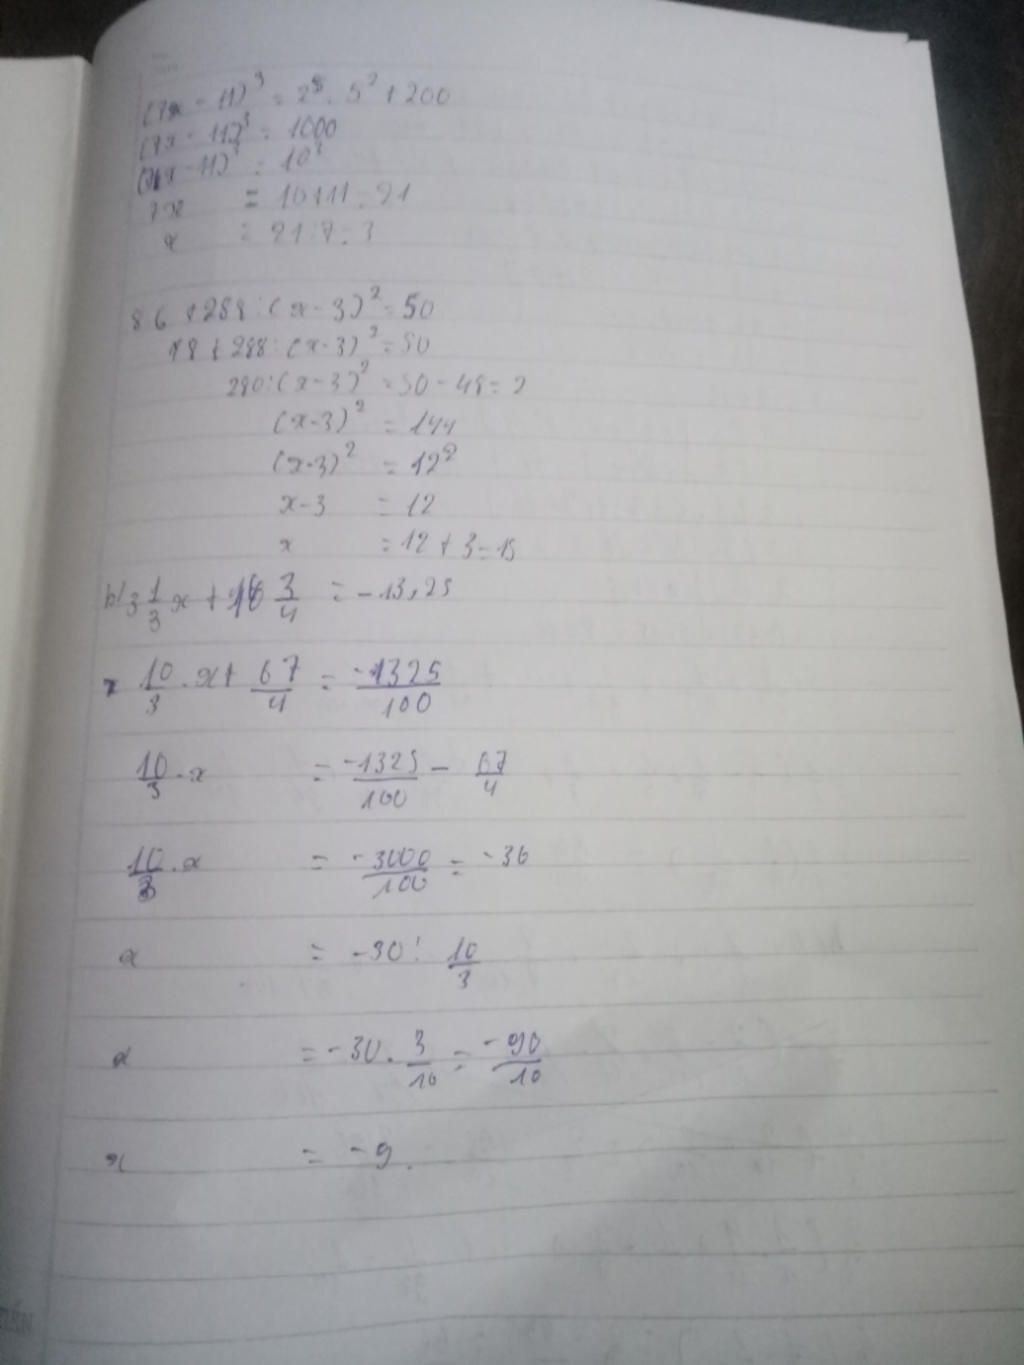 (7x - 11)³ = 2⁵ . 5² + 200
(7x - 11)³ = 1000
(7x - 11)³ = 10³
7x = 10+11 = 21
x = 21:7 = 3
8 6 + 288 : (x - 3)² = 50
48 + 288 : (x-3)² = 50
280 : (x-3)² = 50 - 48 = 2
(x-3)² = 144
(x-3)² = 12²
x-3 = 12
x = 12 + 3 = 15
b/ 3 1/3 x + 16 3/4 = -13,25
10/3 . x + 67/4 = -1325/100
10/3 . x = -1325/100 - 67/4
10/3 . x = -3000/100 = -30
x = -30 : 10/3
x = -30 . 3/10 = -90/10
x = -9.